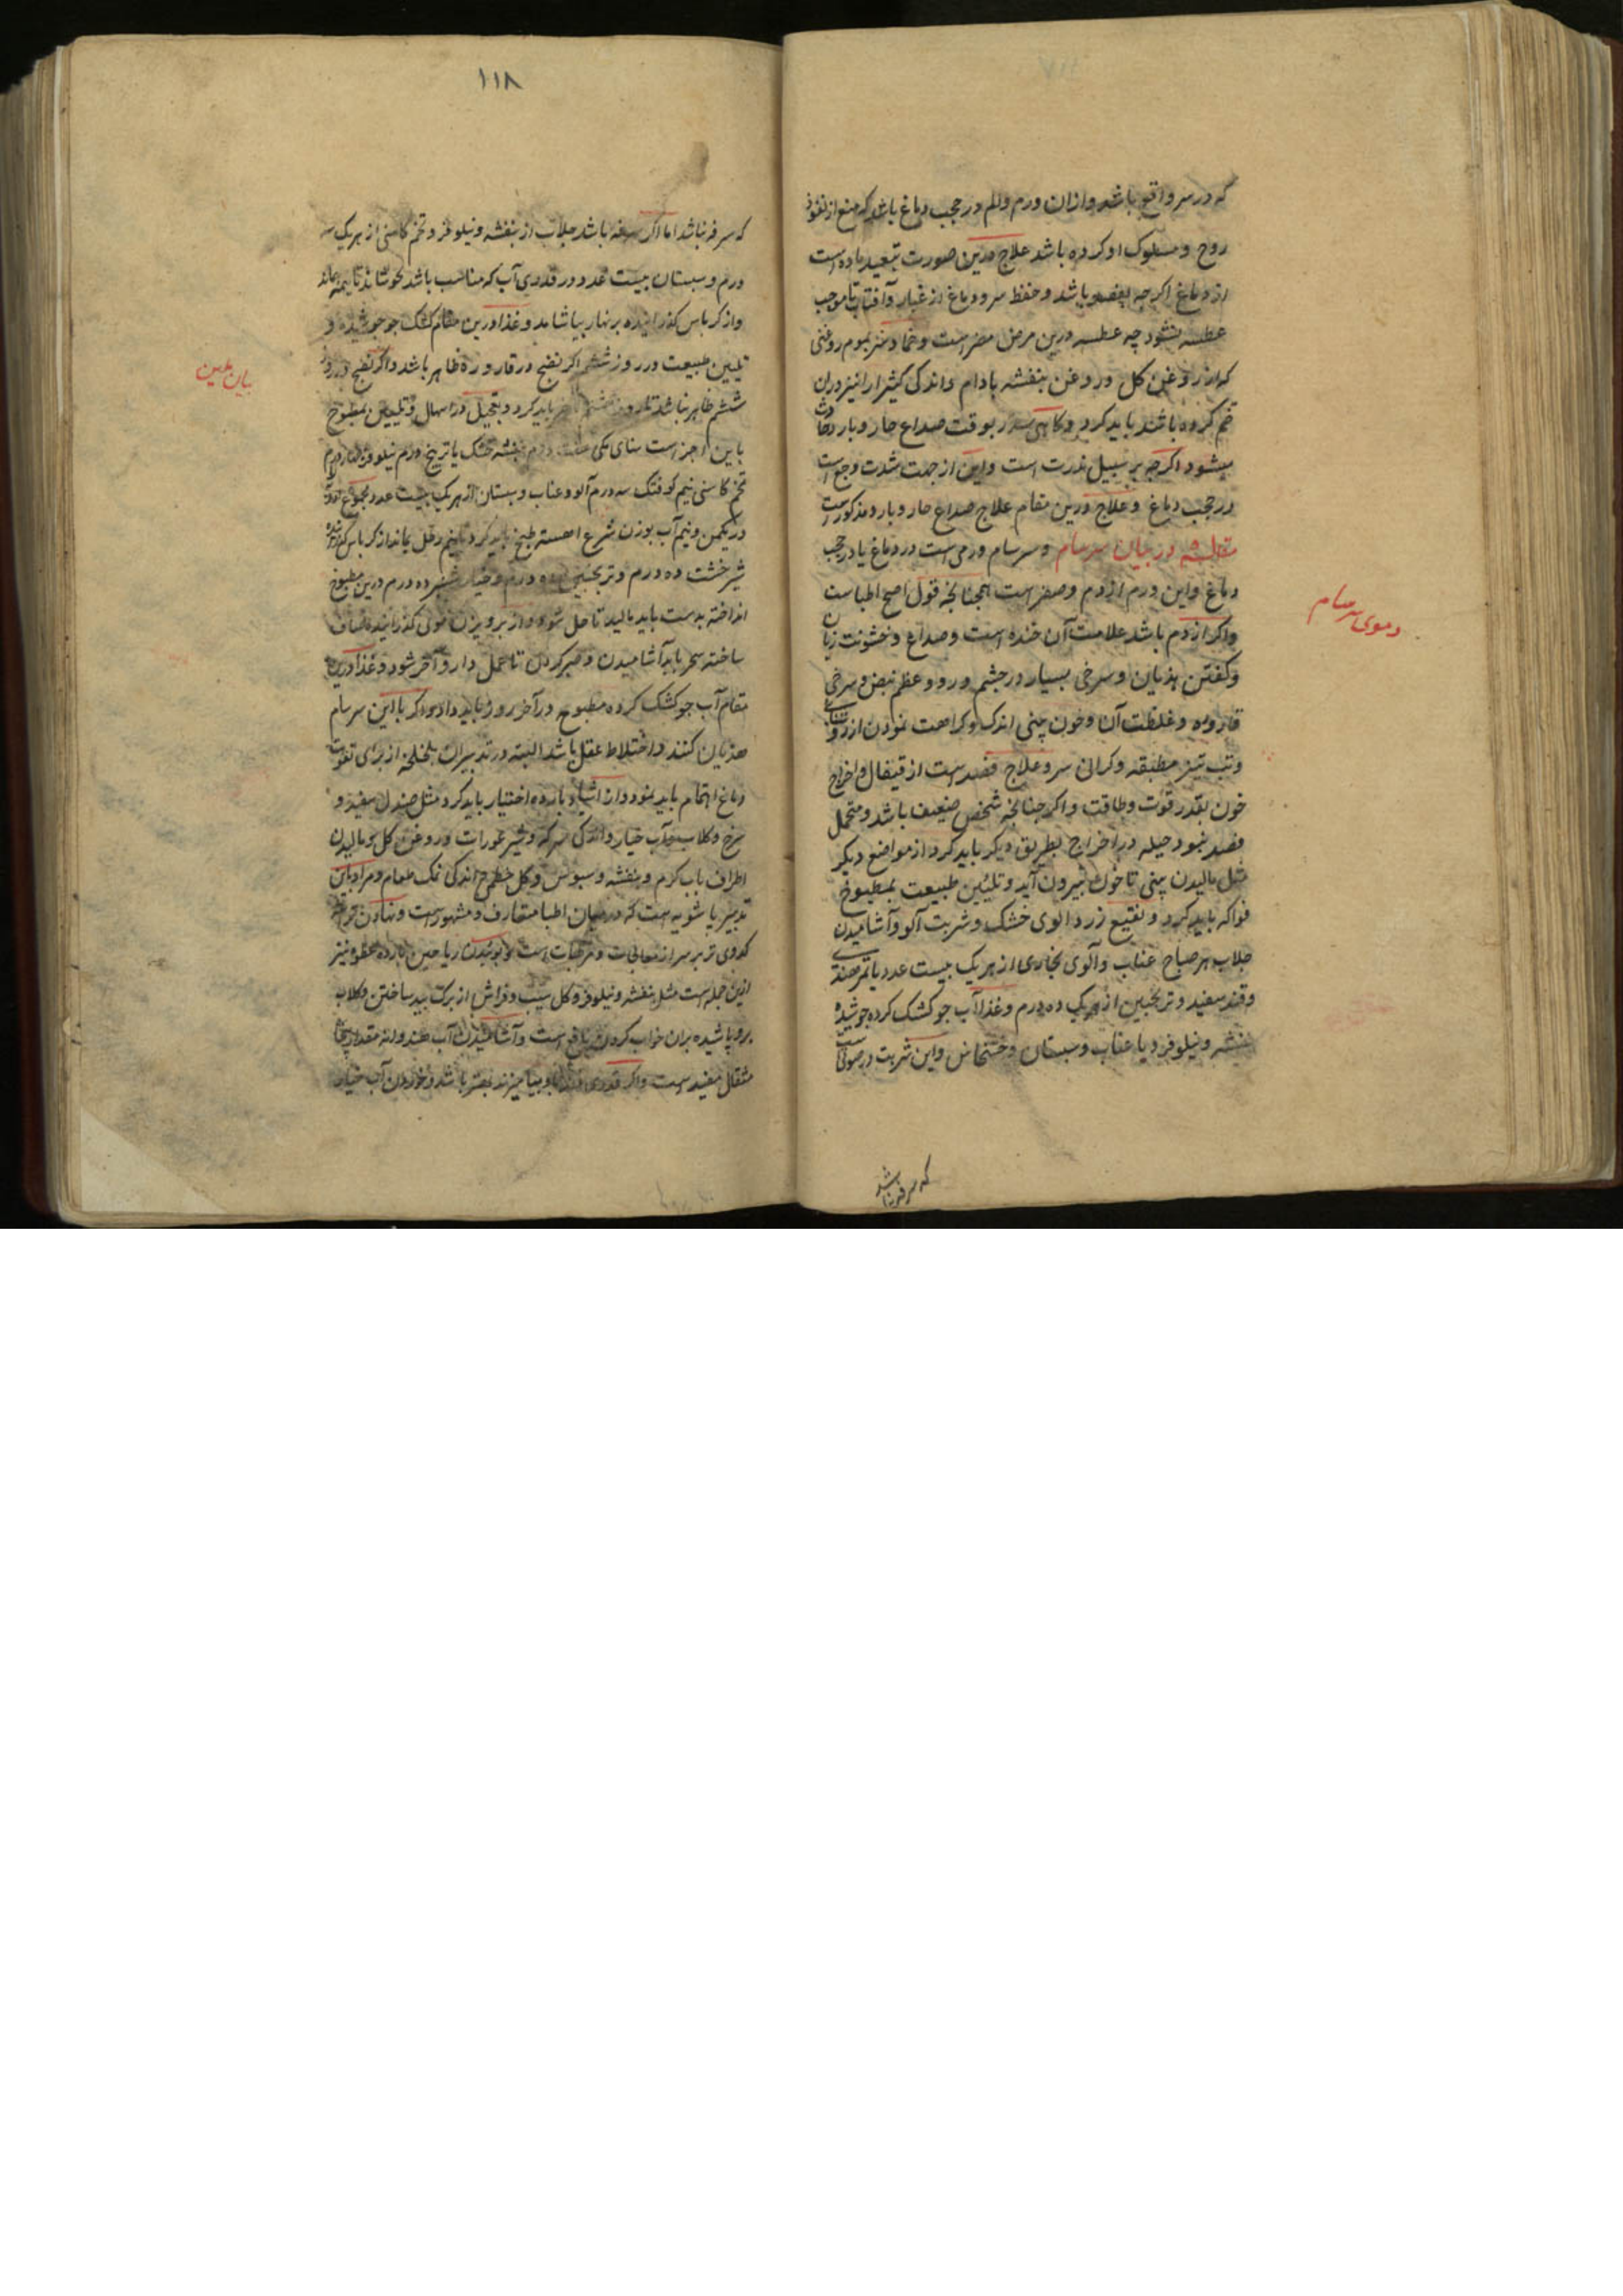 که در سر واقع باشد و ازان ورم و الم در حجب دماغ باشد که منع از نفوذ
روح و مسلوک او کرده باشد علاج درین صورت تبعید ماده است
از دماغ اکرچه بفصد باشد و حفظ سر و دماغ از غبار و آفتاب تا موجب
عطسه نشود چه عطسه درین مرض مضر است و ضماد سر بموم روغنی
که از روغن کل و روغن بنفشه بادام و اندکی کثیرا را نیز دران
ضم کرده باشند باید کرد و کاهی سدر بوقت صداع حار و بارد حادث
میشود اکرچه بر سبیل ندرت است و این از جهت شدت وجع است
در حجب دماغ و علاج درین مقام علاج صداع حار و بارد مذکور است
در بیان سرسام و سرسام ورمی است در دماغ یا در حجب
دماغ و این ورم از دم و صفر است همچنانچه قول اصح اطباست
و اکر از دم باشد علامت آن خنده است و صداع و خشونت زبان
و کفتن هذیان و سرخی بسیار در چشم و رو و عظم نبض و سرخی
قاروره و غلظت آن و خون بینی اندک و کراهت نمودن از روشنایی
و تب تیز مطبقه و کرانی سر و علاج فصد است از قیفال و اخراج
خون بقدر قوت و طاقت و اکر چنانچه شخص ضعیف باشد و متحمل
فصد نبود حیله در اخراج بطریق دیکر باید کرد از مواضع دیکر
مثل مالیدن بینی تا خون بیرون آید و تلیین طبیعت بمطبوخ
فواکه باید کرد و نقیع زردالوی خشک و شربت آلو و آشامیدن
جلاب هر صباح عناب و آلوی بخاری از هر یک بیست عدد با تمر هندی
و قند سفید و ترنجبین از هر یک ده درم و غذا آب جو کشک کرده جوشیده
بنفشه و نیلوفر و یا عناب و سبستان و خشخاش و این شربت در صورتی است
که سرفه نباشد
دموی سرسام
۱۱۸
که سرفه نباشد اما اکر سرفه باشد جلاب از بنفشه و نیلوفر و تخم کاسنی از هر یک سه
درم و سبستان بیست عدد در قدری آب که مناسب باشد بجوشاند تا نیمه بماند
و از کرباس کذرانیده بر نهار بیاشامد و غذا درین مقام کشک جو جوشیده و
تلیین طبیعت در روز ششم اکر نضج در قاروره ظاهر باشد و اکر نضج در روز
ششم ظاهر نباشد تا روز باید کرد و بتجیل در اسهال و تلیین بمطبوخ
باین اجز است سنای مکی هفت درم بنفشه خشک یا تر پنج درم نیلوفر چهار درم
تخم کاسنی نیم کوفتک سه درم آلو و عناب و سبستان از هر یک بیست عدد مجموع
در یکمن و نیم آب بوزن شرع اهسته طبخ باید کرد تا نیم رطل بماند از کرباس کذرانیده
شیرخشت ده درم و ترنجبین ده درم و خیار شنبر ده درم درین مطبوخ
انداخته بدست باید مالید تا حل شود و از پرویزن موئی کذرانیده صاف
ساخته سحر باید آشامیدن و صبر کردن تا عمل دارو آخر شود و غذا درین
مقام آب جو کشک کرده مطبوخ در آخر روز باید داد و اکر با این سرسام
هذیان کنند و اختلاط عقل باشد البته در تدبیرات لخلخه از برای تقویت
دماغ اهتمام باید نمود و از اشیاء بارده اختیار باید کرد مثل صندل سفید و
سرخ و کلاب و آب خیار و اندکی سرکه و شیر عورات و روغن کل و مالیدن
اطراف باب کرم و بنفشه و سبوس و کل خطمی اندکی نمک طعام و مراد باین
تدبیر پاشویه است که در میان اطبا متعارف و مشهور است و نهادن
کدوی تر بر سر از معالجات و مرطبات است و بوئیدن ریاحین بارده عطره نیز
ازین جمله است مثل بنفشه و نیلوفر و کل سیب و فراش از برک بید ساختن و کلاب
برو پاشیده بران خواب کردن نافع است و آشامیدن آب هندوانه مقدار پنجاه
مثقال مفید است و اکر قدری قند باو بیامیزند بهتر باشد و خوردن آب خیار